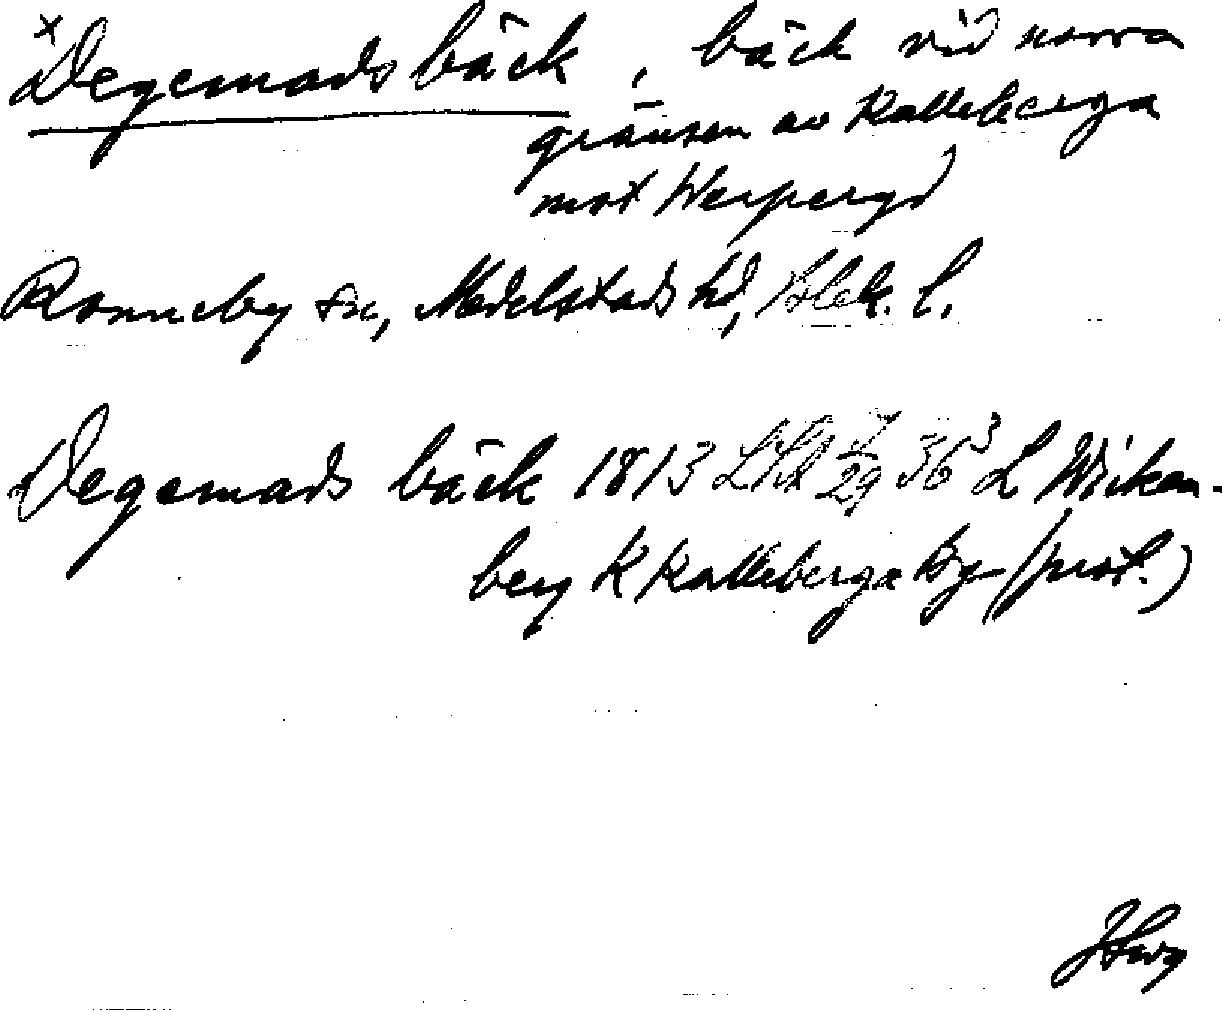 × Degemadsbäck, bäck vid norra
gränsen av Kalleberga
mot Werperyd
Ronneby sn, Medelstads hd, Blek. l.
Degemads bäck 1813 LHd 7/29 36³ L Wieken-
berg K Kalleberga By (prot.)